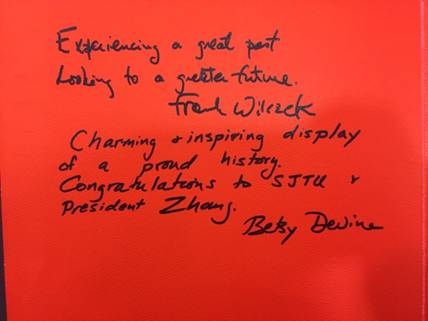 Experiencing a great past
Looking to a greater future.
Frank Wilczek
Charming & inspiring display
of a proud history.
Congratulations to SJTU &
President Zhang.
Betsy Devine